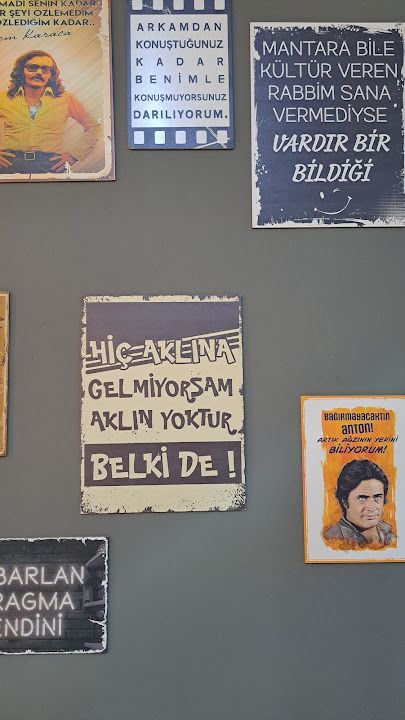 MADI SENİN KADAR
R ŞEYİ ÖZLEMEDİM
ÖZLEDİĞİM KADAR..
em Karaca
ARKAMDAN
KONUŞTUĞUNUZ
KADAR
BENİMLE
KONUŞMUYORSUNUZ
DARILIYORUM.
MANTARA BİLE
KÜLTÜR VEREN
RABBİM SANA
VERMEDİYSE
VARDIR BİR
BİLDİĞİ
HİÇ AKLINA
GELMİYORSAM
AKLIN YOKTUR
BELKİ DE !
BAĞIRMAYACAKTIN
ANTON!
ARTIK AĞZININ YERİNİ
BİLİYORUM!
BARLAN
RAGMA
ENDİNİ